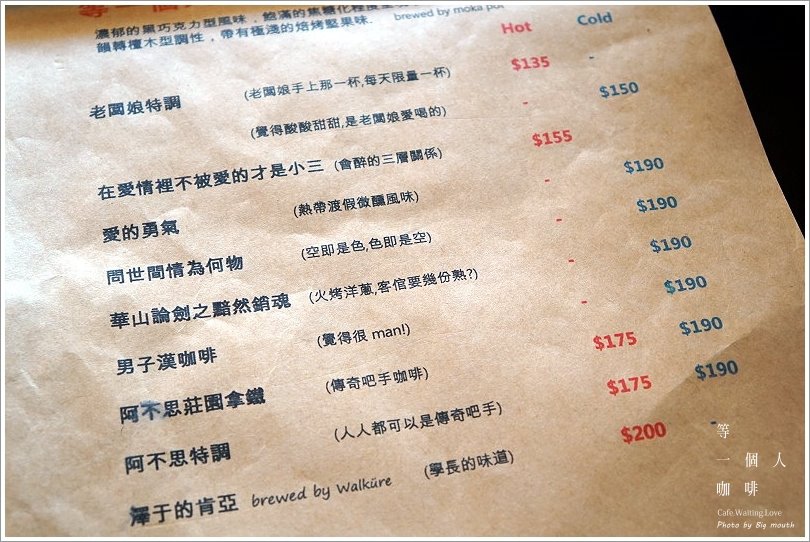 濃郁的黑巧克力型風味，飽滿的焦糖化程度
韻轉檀木型調性，帶有極淺的焙烤堅果味. brewed by moka pot
Hot Cold
老闆娘特調 (老闆娘手上那一杯,每天限量一杯) $135 -
(覺得酸酸甜甜,是老闆娘愛喝的) - $150
在愛情裡不被愛的才是小三 (會醉的三層關係) $155
愛的勇氣 (熱帶渡假微醺風味) - $190
問世間情為何物 (空即是色,色即是空) - $190
華山論劍之黯然銷魂 (火烤洋蔥,客倌要幾份熟?) - $190
男子漢咖啡 (覺得很 man!) - $190
阿不思莊園拿鐵 (傳奇吧手咖啡) $175 $190
阿不思特調 (人人都可以是傳奇吧手) $175 $190
澤于的肯亞 brewed by Walküre (學長的味道) $200 -
等
一個人
咖啡
Cafe.Waiting.Love
Photo by Big mouth